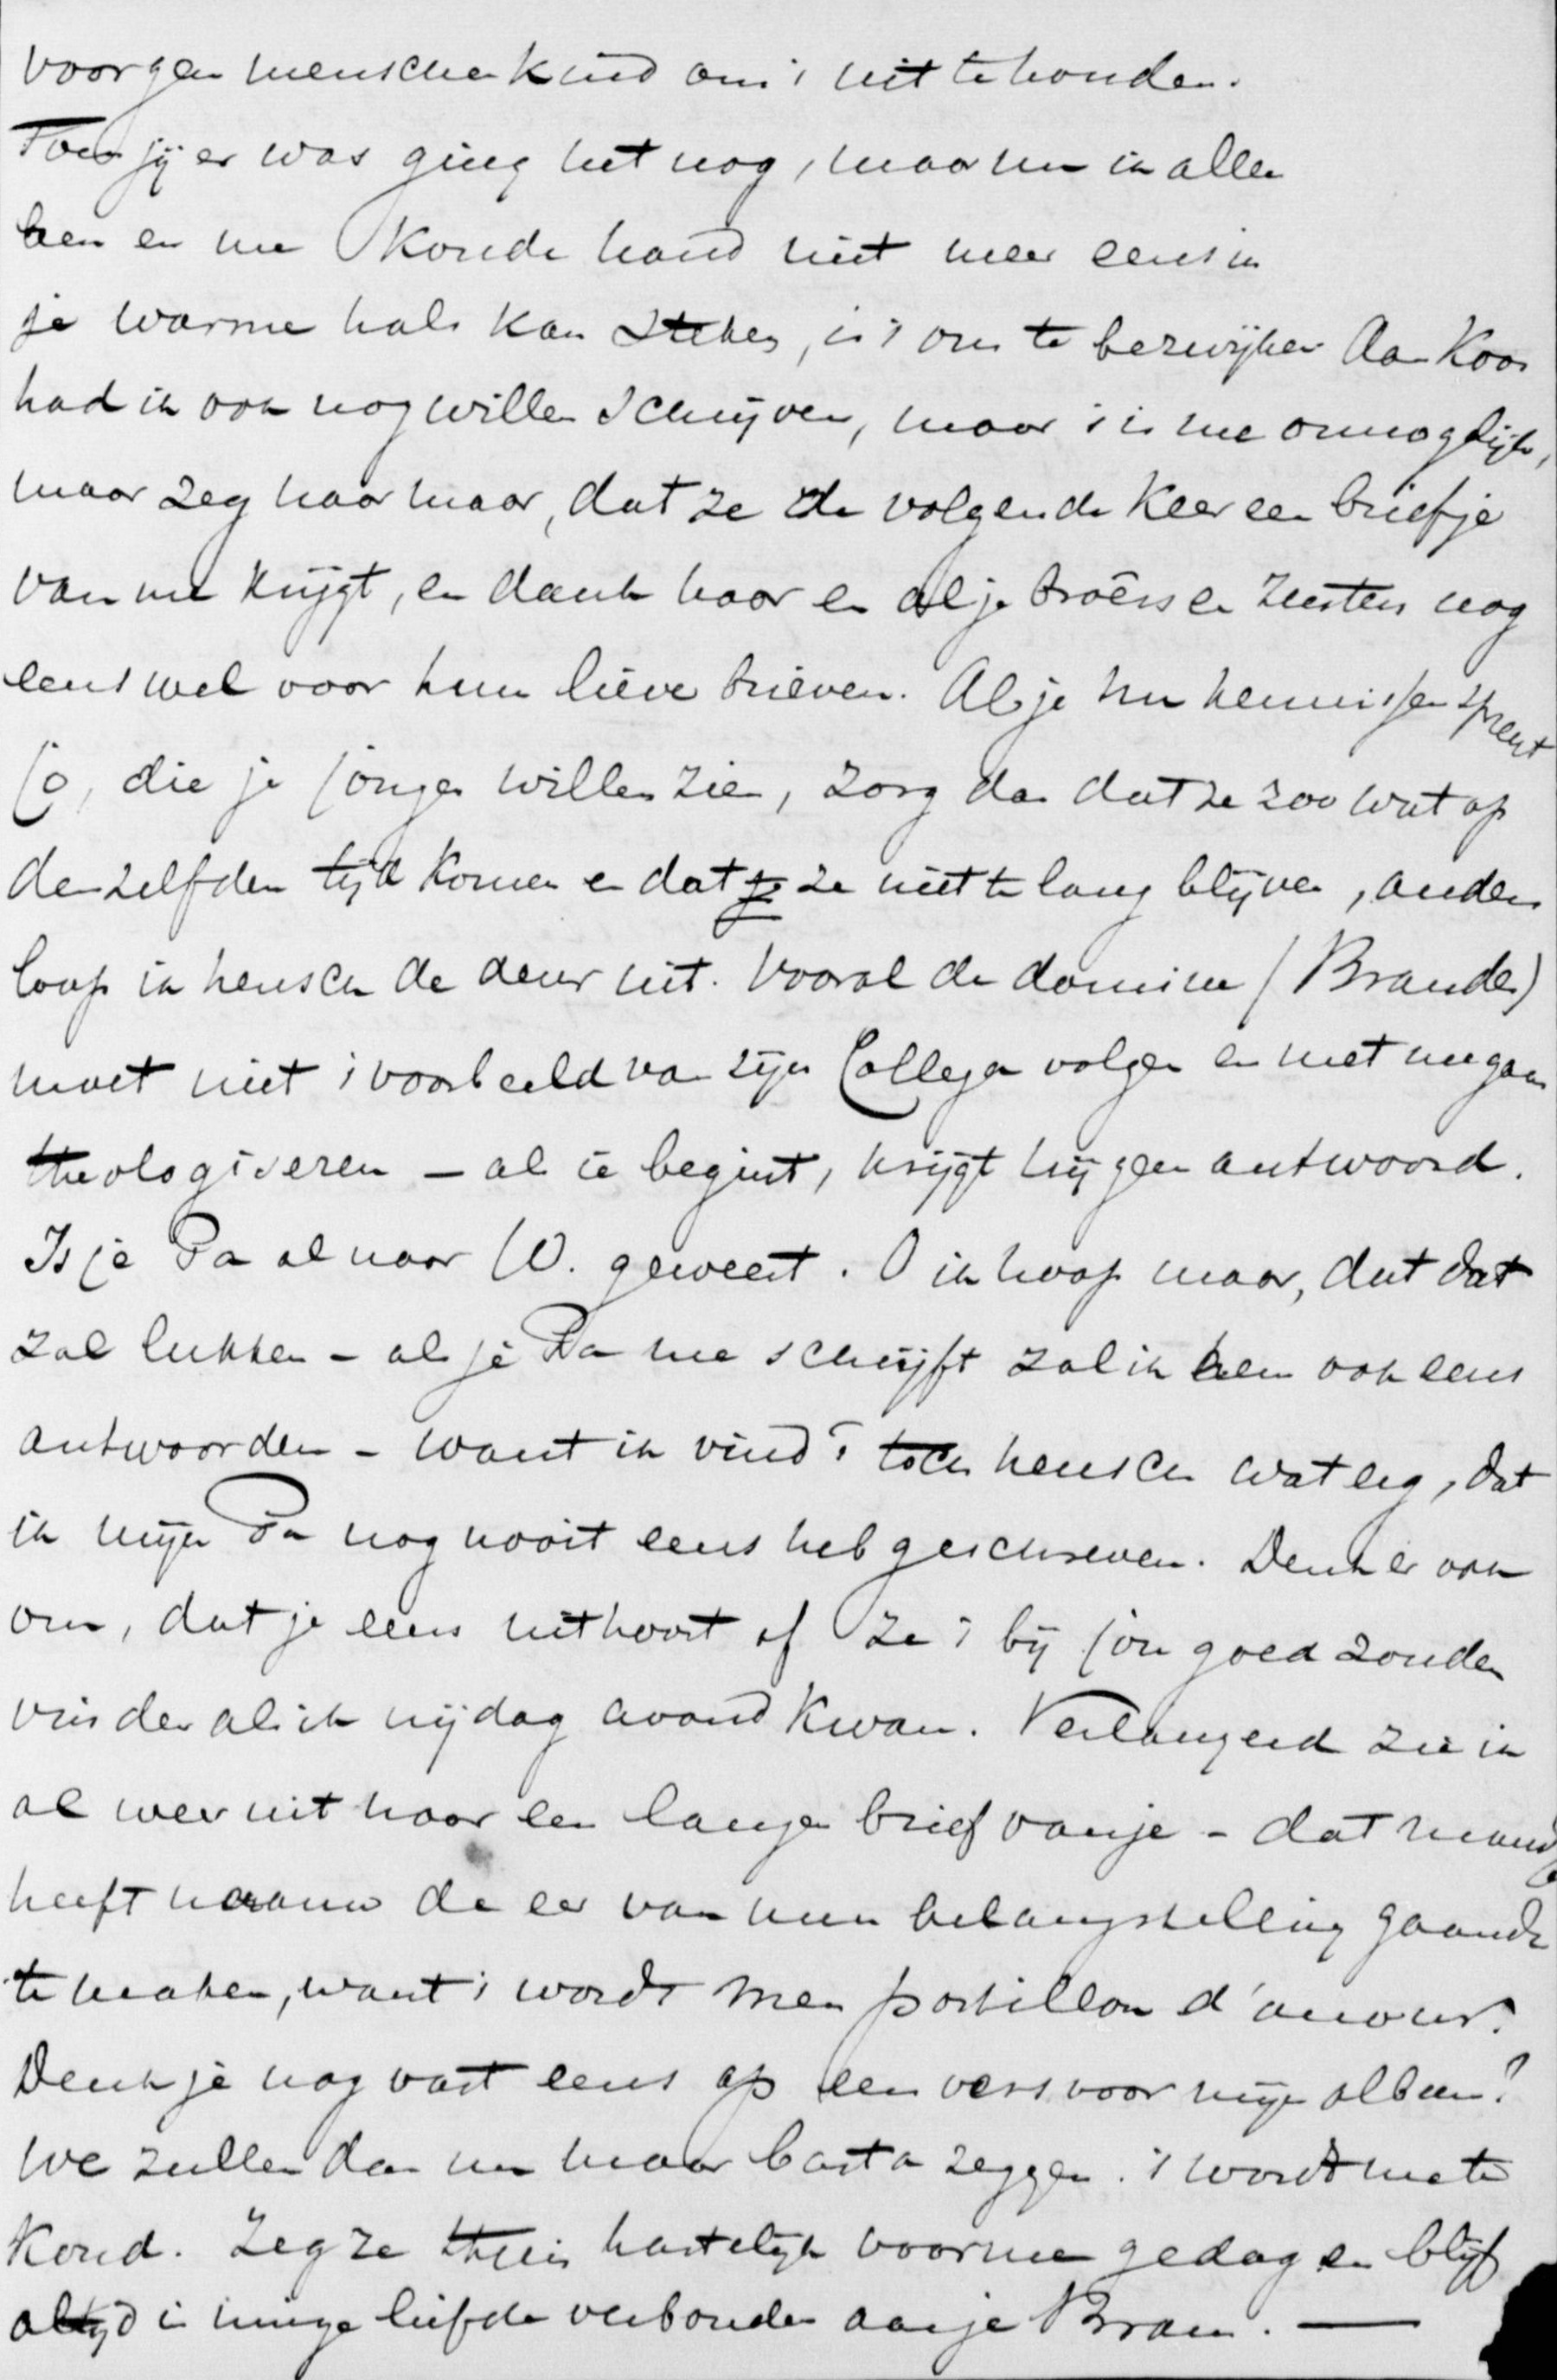 voor geen menschenkind om 't uit te houden.
Toen jij er was ging het nog, maar nu ik alleen
ben en me koude hand niet meer eens in
je warme hals kan steken, is 't om te bezwijken Aan Koos
had ik ook nog willen schrijven, maar 't is me onmogelijk,
maar zeg haar maar, dat ze de volgende keer een briefje
van me krijgt, en dank haar en al je broêrs en zusters nog
eens wel voor hun lieve brieven. Als je nu kennissen spreekt
Jo, die je jongen willen zien, zorg dan dat ze zoo wat op
denzelfden tijd komen en dat ze niet te lang blijven, anders
loop ik heusch de deur uit. Vooral de dominee (Brandes)
moet niet 't voorbeeld van zijn Collega volgen en met me gaan
theologiseren – als ie begint, krijgt hij geen antwoord.
Is je Pa al naar W. geweest. O ik hoop maar, dat dat
zal lukken – als je Pa me schrijft zal ik hem ook eens
antwoorden – want ik vind 't toch heusch wat erg, dat
ik mijn Pa nog nooit eens heb geschreven. Denk er ook
om, dat je eens uithoort of ze 't bij jou goed zouden
vinden als ik vrijdag avond kwam. Verlangend zie ik
al weer uit naar een langen brief van je – dat mandje
heeft nu de eer van hun belangstelling gaande
te maken, want 't wordt men postillon d'amour.
Denk je nog vast eens op een vers voor mijn album?
We zullen dan nu maar basta zeggen. 't wordt me te
koud. Zeg ze thuis hartelijk voor me gedag en blijf
altijd in innige liefde verbonden aan je Bram. —